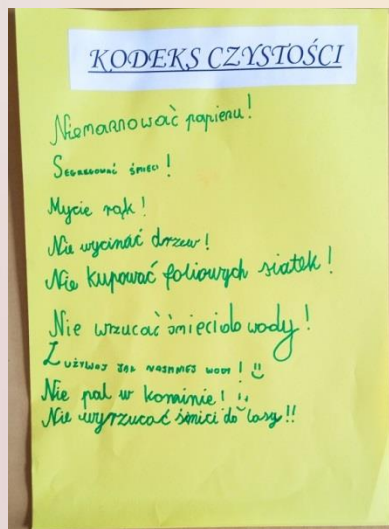 KODEKS CZYSTOŚCI
Niemarnować papieru!
Segregować śmieci!
Mycie rąk!
Nie wycinać drzew!
Nie kupować foliowych siatek!
Nie wrzucać śmieci do wody!
Zużywaj jak najmniej wody! ☺
Nie pal w kominie! ☺
Nie wyrzucać śmici do lasy!!